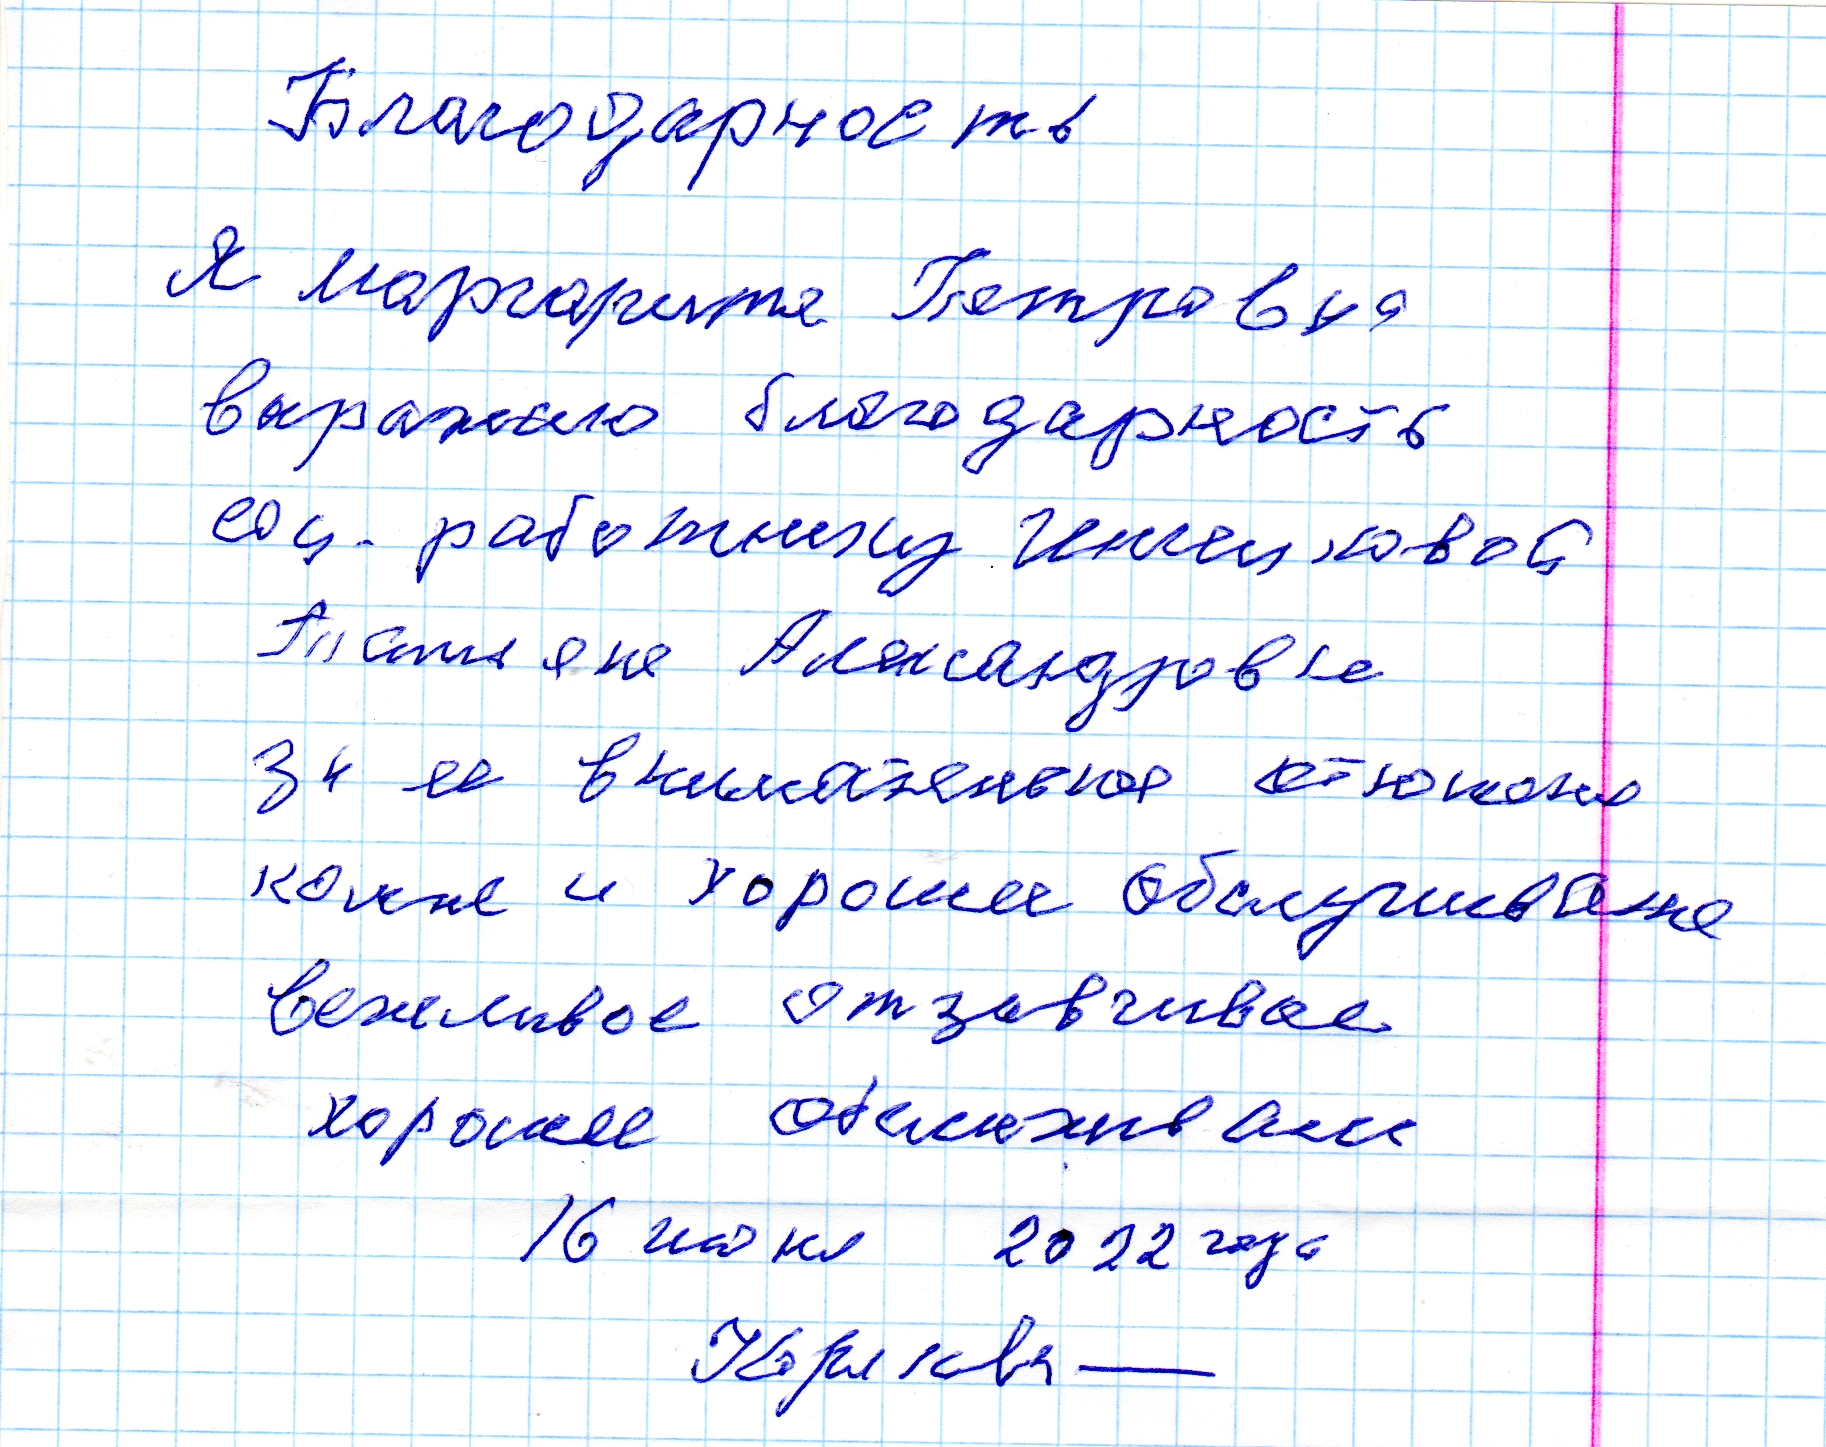 Благодарность
Я Маргарита Петровна
выражаю благодарность
соц. работнику
Татьяне Александровне
За ее внимательное
ко мне и хорошее обслуживание
вежливое отзывчивое
хорошее
16 июня 2022 года